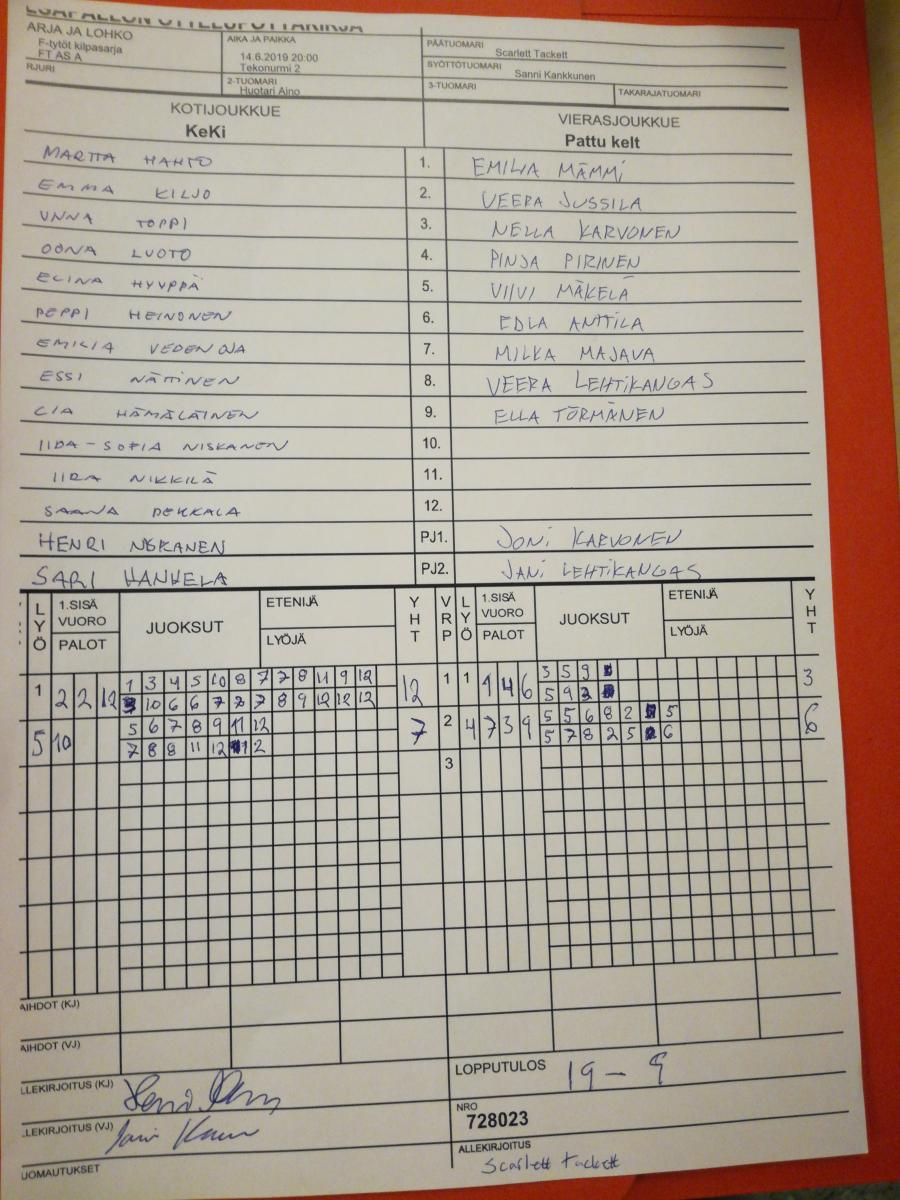 ARJA JA LOHKO
F-tytöt kilpasarja
FT AS A
RJURI
AIKA JA PAIKKA
14.6.2019 20:00
Tekonurmi 2
2-TUOMARI
Huotari Aino
PÄÄTUOMARI
Scarlett Tackett
SYÖTTÖTUOMARI
Sanni Kankkunen
3-TUOMARI
TAKARAJATUOMARI
KOTIJOUKKUE
KeKi
VIERASJOUKKUE
Pattu kelt
MARTTA HAHTO 1. EMILIA MÄMMI
EMMA KILJO 2. VEERA JUSSILA
UNNA TOPPI 3. NELLA KARVONEN
OONA LUOTO 4. PINJA PIRINEN
ELINA HYYPPÄ 5. VIIVI MÄKELÄ
PEPPI HEINONEN 6. EDLA ANTTILA
EMILIA VEDENOJA 7. MILKA MAJAVA
ESSI NÄTTINEN 8. VEERA LEHTIKANGAS
CIA HÄMÄLÄINEN 9. ELLA TÖRMÄNEN
IIDA-SOFIA NISKANEN 10.
IIRA NIKKILÄ 11.
SAANA PEKKALA 12.
HENRI NISKANEN PJ1. JONI KARVONEN
SARI HANHELA PJ2. JANI LEHTIKANGAS
LYÖ 1.SISÄ VUORO PALOT JUOKSUT ETENIJÄ LYÖJÄ YHT VRP LYÖ 1.SISÄ VUORO PALOT JUOKSUT ETENIJÄ LYÖJÄ YHT
1 2 2 12 1 3 4 5 10 8 7 7 8 11 9 12 12 1 1 1 4 6 3 5 9 3
10 6 6 7 7 7 8 9 12 12 12 5 9 3
5 10 5 6 7 8 9 11 12 7 2 4 7 3 9 5 5 6 8 2 5 6
7 8 8 11 12 12 5 7 8 2 5 6
3
AIHDOT (KJ)
AIHDOT (VJ)
LLEKIRJOITUS (KJ)
LLEKIRJOITUS (VJ)
UOMAUTUKSET
LOPPUTULOS 19 - 9
NRO
728023
ALLEKIRJOITUS
Scarlett Tackett